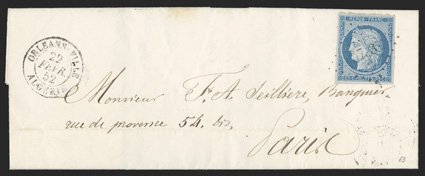 ORLEANSVILLE
22
FEVR.
52
ALGÉRIE
REPUB. FRANC.
Monsieur F. A. Seillière, Banquier
rue de provence 54. bis,
Paris